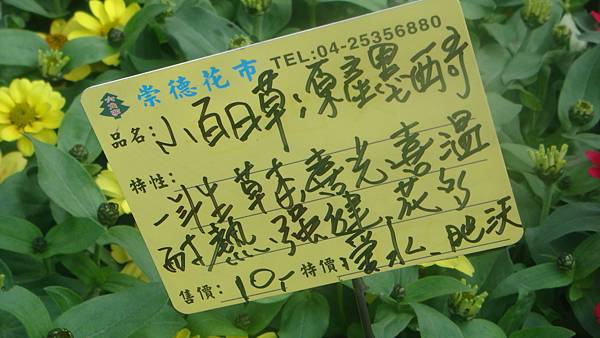 崇德花市 TEL:04-25356880
品名:小百日草:原產墨西哥
特性:
一年生草本喜光喜溫
耐熱強健 花多
售價:10.- 特價:愛水 肥沃